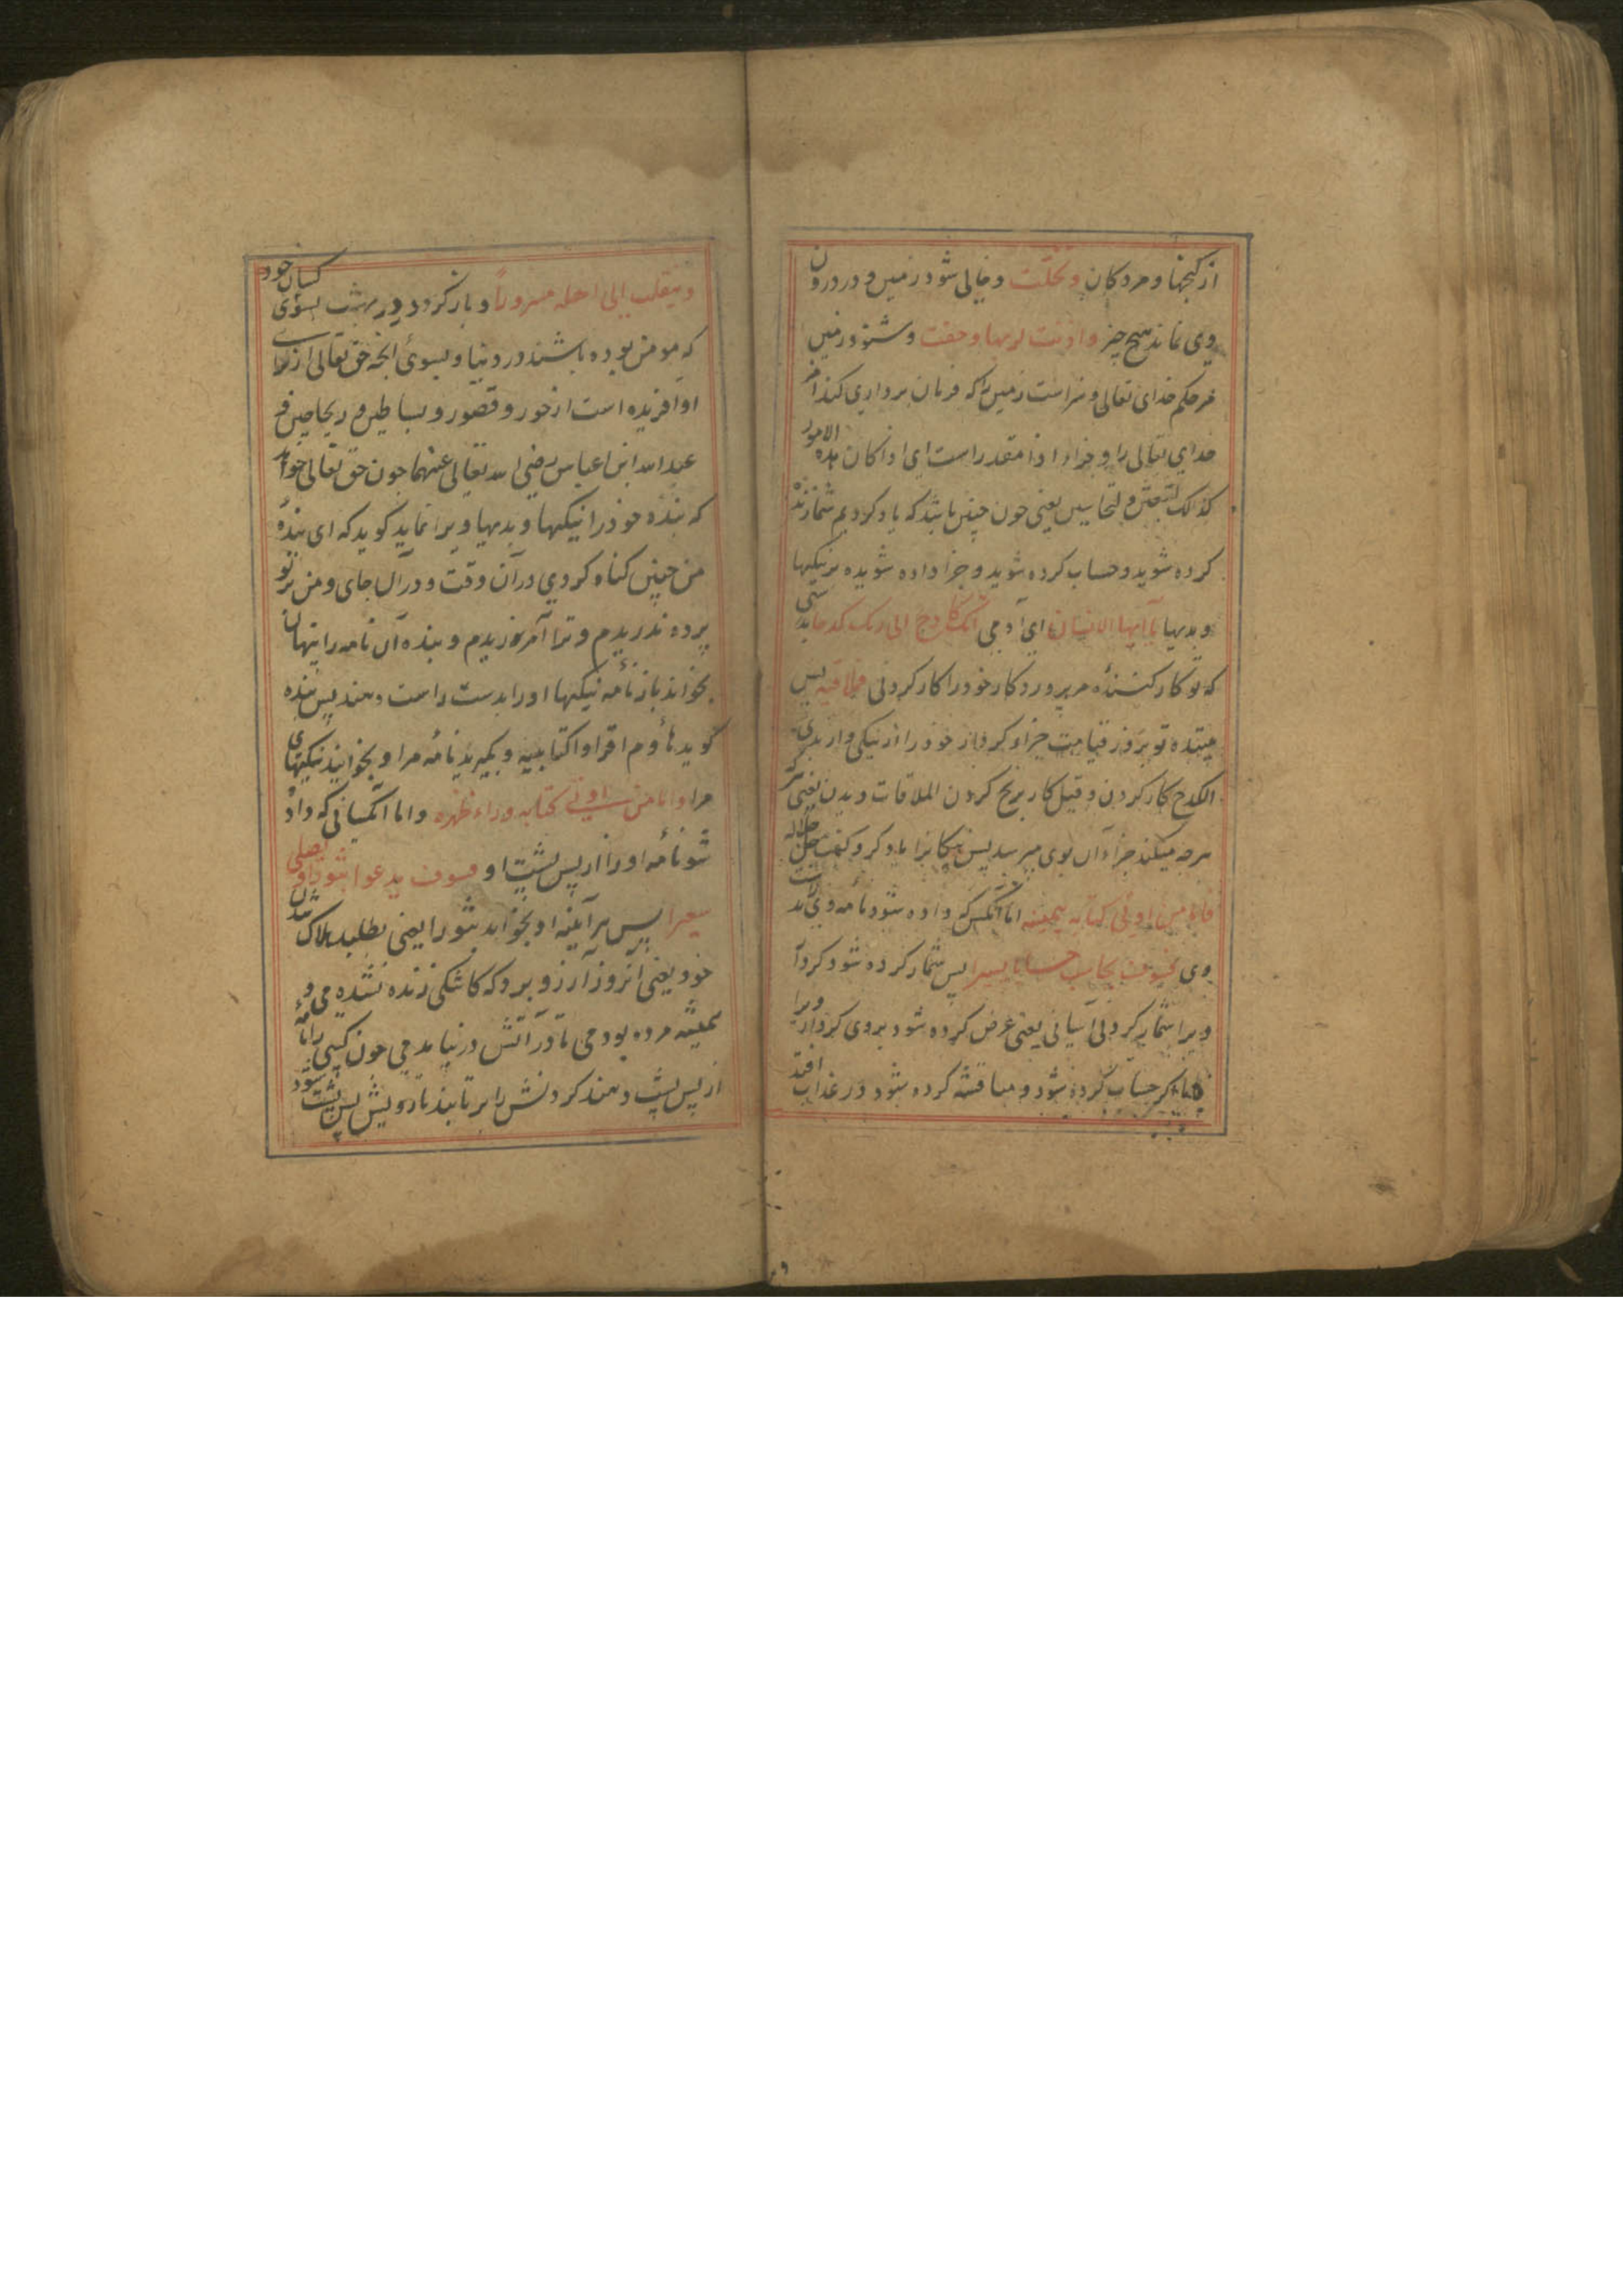 از گنجها و مردکان وتخلّت و خالی شود زمین و در درون
وی نماند هیچ چیز واذنت لربها وحقت و شنود زمین
مر حکم خدای تعالی و سزاست زمین را که فرمان برداری کند امر
خدای تعالی را و جزاء اذا مقدر است ای اذا کان هذه الامور
کذلک لتبعثن ولتحاسبن یعنی چون چنین باشد که یاد کردیم شما زنده
کرده شوید و حساب کرده شوید و جزا داده شوید بر نیکیها
و بدیها یا ایها الانسان ای آدمی انک کادح الی ربک کدحا بدرستی
که تو کار کننده مر پروردکار خود را کار کردنی فملاقیه پس
بیننده تو بروز قیامت جزاء کردار خود را از نیکی و از بدی
الکدح کار کردن و قیل کار برنج کردن الملاقات دیدن یعنی هر
هر چه میکند جزاء آن بوی میرسد پس نیکانرا یاد کرد و کفت جل جلاله
فاما من اوتی کتابه بیمینه اما آنکس که داده شود نامه وی بدست راست
وی فسوف یحاسب حسابا یسیرا پس شمار کرده شود کردار
ویرا شمار کردنی آسانی یعنی عرض کرده شود بروی کردار ویرا
که حساب کرده شود و مناقشه کرده شود در عذاب افتد
وینقلب الی اهله مسروراً و باز کردد در بهشت بسوی کسان خود
که مومن بوده باشند در دنیا و بسوی انچه حق تعالی از برای
او آفریده است از حور و قصور و بساطین و ریاحین
عبد الله ابن عباس رضی الله تعالی عنهما چون حق تعالی خواهد
که بنده خود را نیکیها و بدیها ویرا نماید کوید که ای بنده
من چنین کناه کردی در آن وقت و در آن جای و من بر تو
پرده ندریدم و ترا آمرزیدم و بنده آن نامه را پنهان
بخواند باز نامه نیکیها او را بدست راست دهند پس بنده
کوید هاؤم اقراوا کتابیه و بکیرید نامه مرا و بخوانید نیکیهای
مرا واما من اوتی کتابه وراء ظهره و اما آنکسانی که داده
شو نامه او را از پس پشت او فسوف یدعوا ثبورا ویصلی
سعیرا پس هر آینه او بخواند ثبورا یعنی بطلبد هلاک شدن
خود یعنی آنروز آرزو برد که کاشکی زنده نشده می و
همیشه مرده بودمی تا در آتش درنیامدمی چون کسی را نامه
از پس پشت دهند کردنش را برتابند تا رویش پس پشت شود